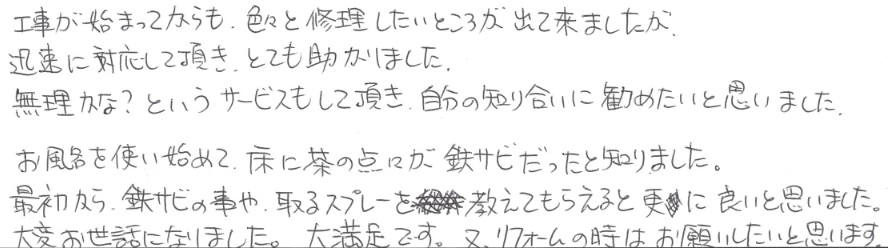 工事が始まってからも、色々と修理したいところが出て来ましたが、
迅速に対応して頂き、とても助かりました。
無理かな?というサービスもして頂き、自分の知り合いに勧めたいと思いました。
お風呂を使い始めて、床に茶の点々が鉄サビだったと知りました。
最初から、鉄サビの事や、取るスプレーを教えてもらえると更に良いと思いました。
大変お世話になりました。大満足です。又、リフォームの時はお願いしたいと思います